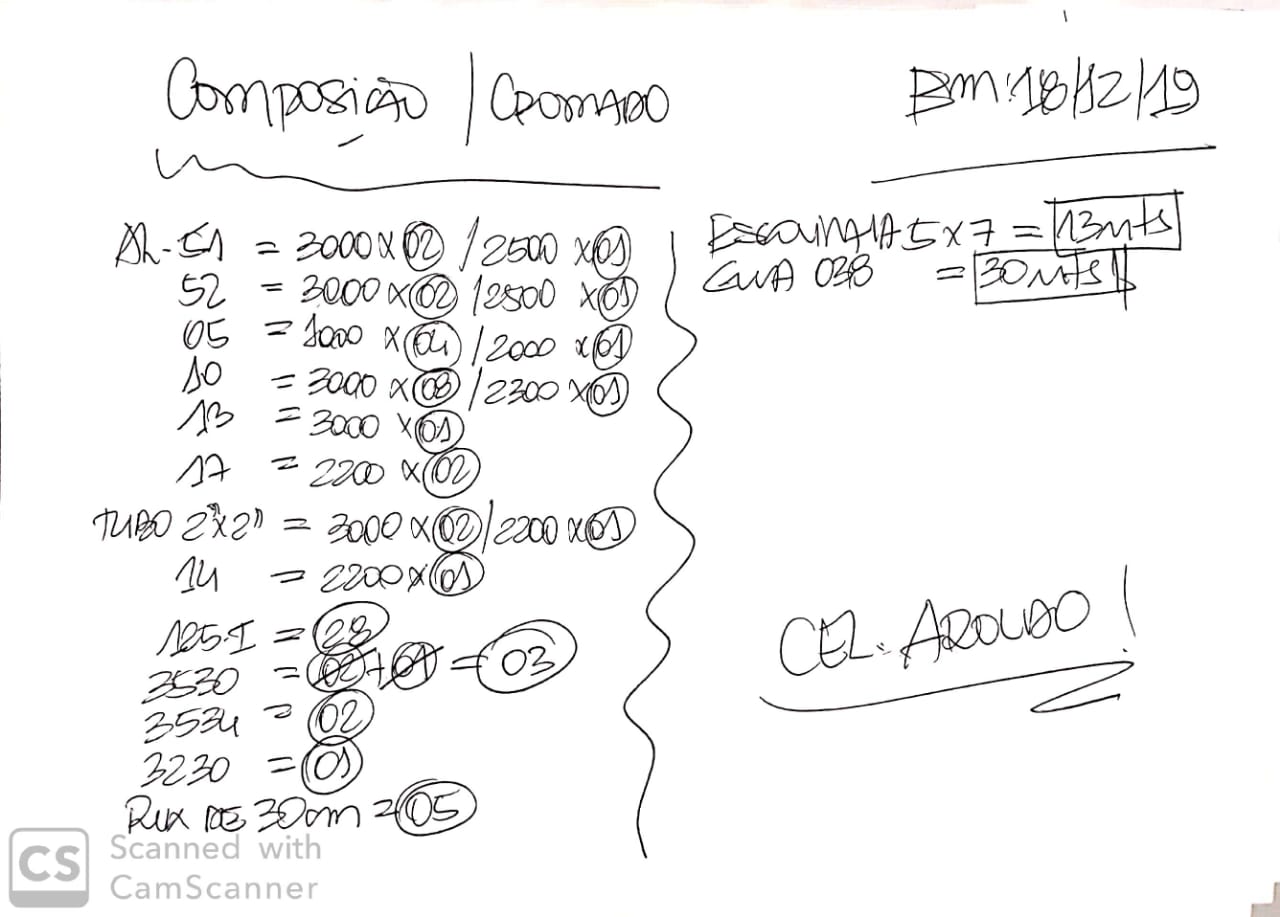 Composição / CROMADO
BM: 18/12/19
AL-51 = 3000 x 02 / 2500 x 01
52 = 3000 x 02 / 2500 x 01
05 = 3000 x 04 / 2000 x 01
10 = 3000 x 08 / 2300 x 01
13 = 3000 x 01
17 = 2200 x 02
TUBO 2"x2" = 3000 x 02 / 2200 x 01
14 = 2200 x 01
125-I = 28
3530 = 02 + 01 = 03
3534 = 02
3230 = 01
DE 30cm = 05
5x7 = 13mts
038 = 30mts
CEL. AROLDO!
CS Scanned with
CamScanner